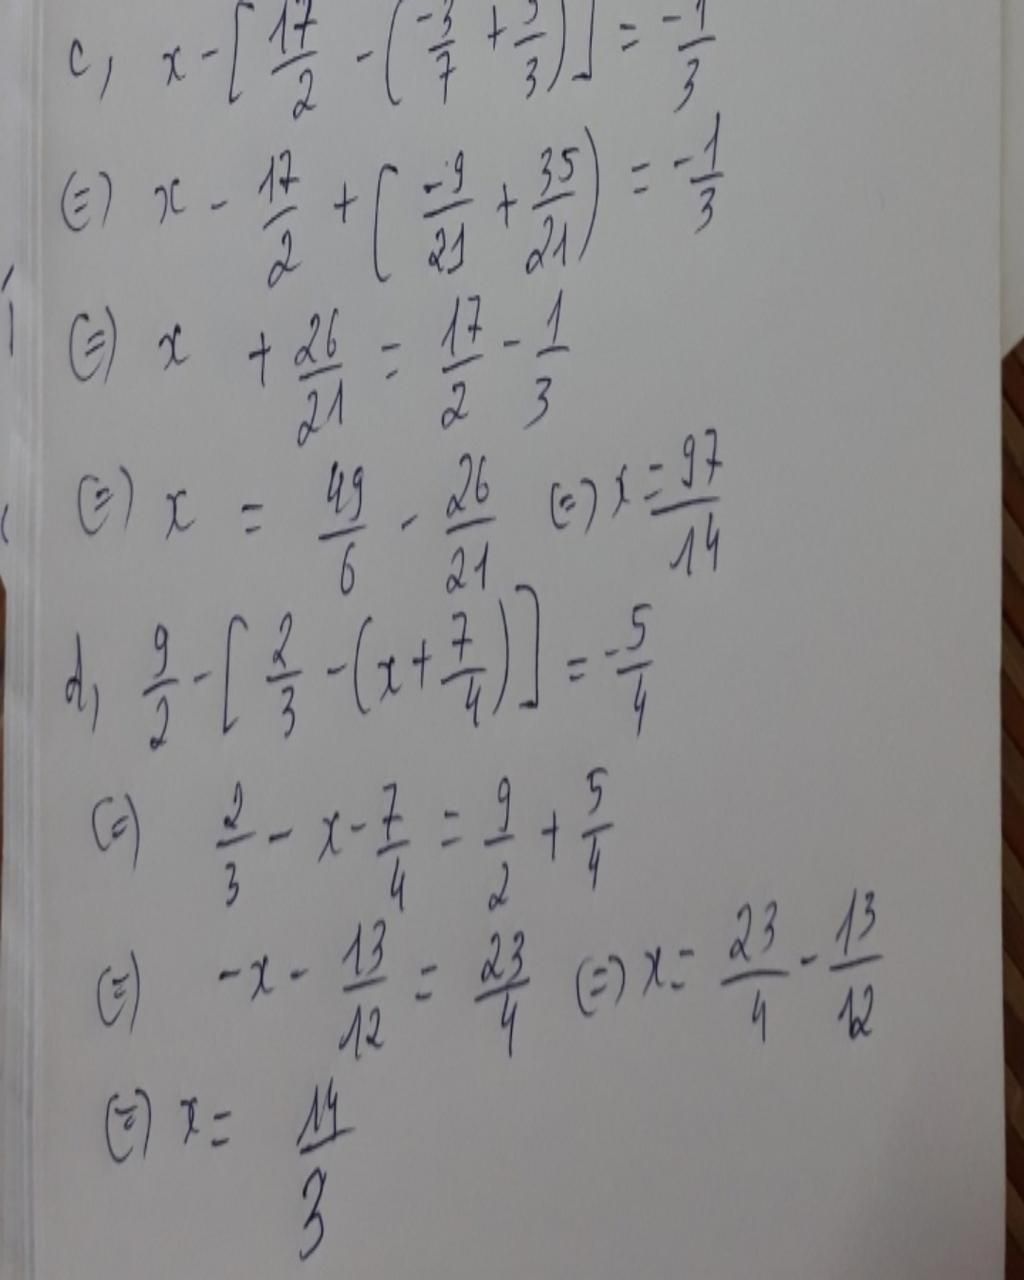 c, x - [17/2 - (-3/7 + 5/3)] = -1/3
(=) x - 17/2 + (-9/21 + 35/21) = -1/3
(=) x + 26/21 = 17/2 - 1/3
(=) x = 49/6 - 26/21 (=) x = 97/14
d, 9/2 - [2/3 - (x + 7/4)] = -5/4
(=) 2/3 - x - 7/4 = 9/2 + 5/4
(=) -x - 13/12 = 23/4 (=) x = 23/4 - 13/12
(=) x = 14/3